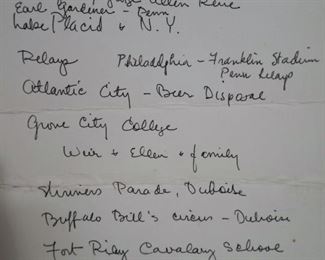 Earl Gardiner - Penn
Lake Placid & N.Y.
Relays Philadelphia - Franklin Stadium
Penn Relays
Atlantic City - Beer Disposal
Grove City College
Weir & Ellen & family
Shriners Parade, Dubois
Buffalo Bill's Circus - Dubois
Fort Riley Cavalary School